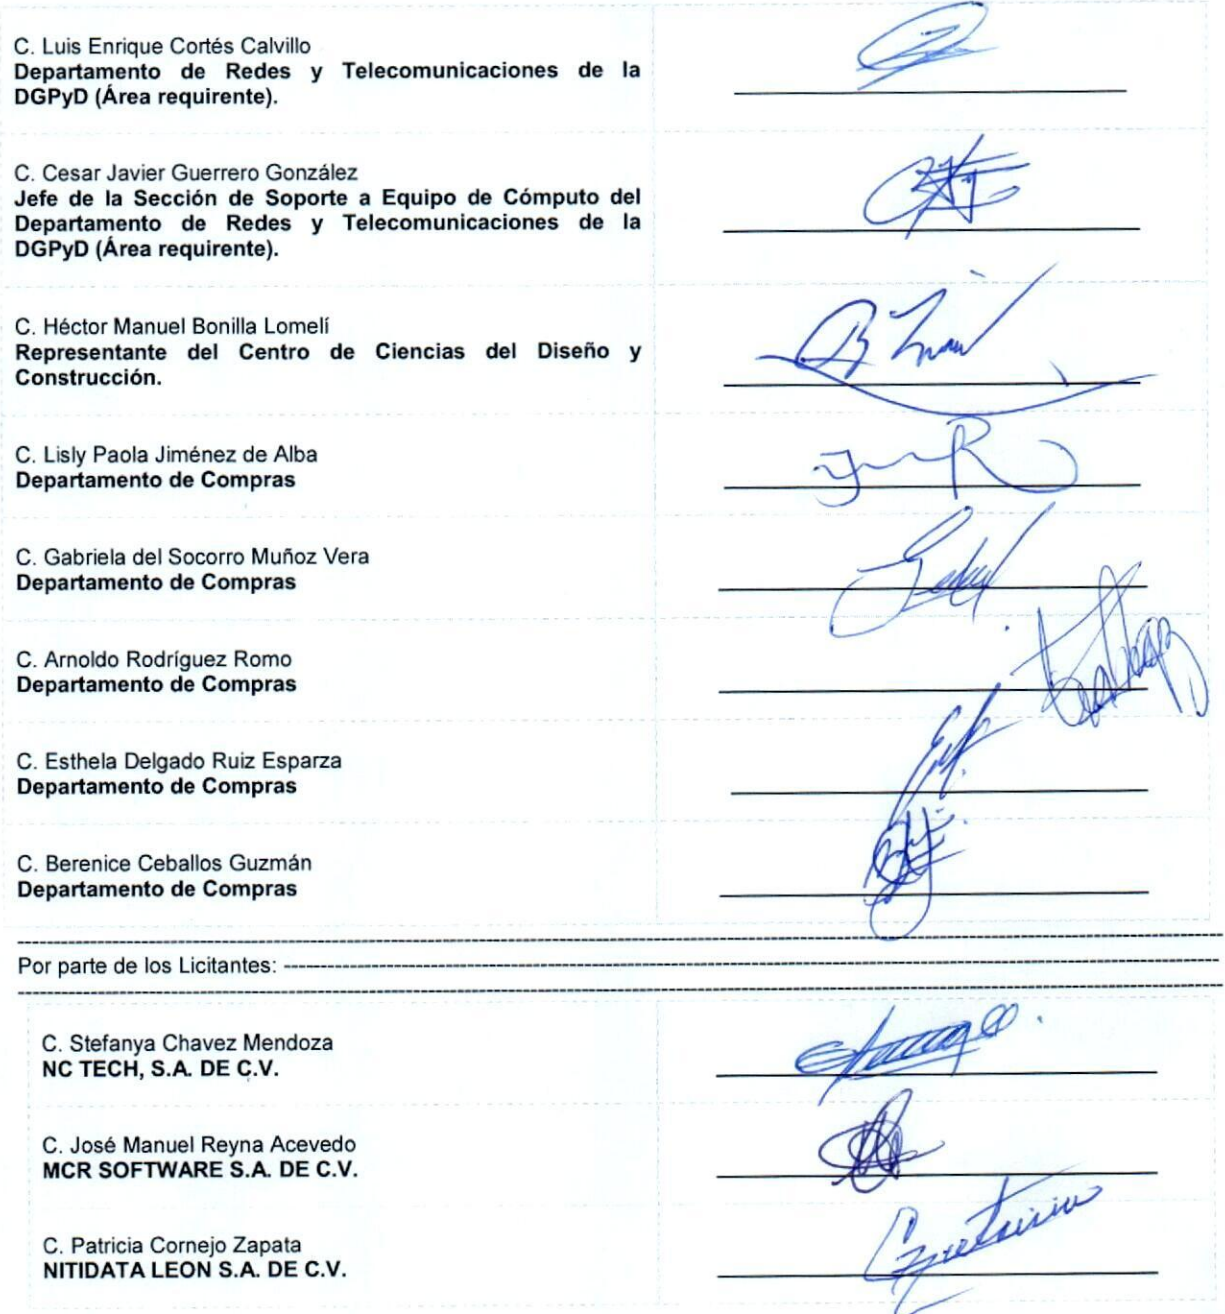 C. Luis Enrique Cortés Calvillo
Departamento de Redes y Telecomunicaciones de la
DGPyD (Área requirente).
C. Cesar Javier Guerrero González
Jefe de la Sección de Soporte a Equipo de Cómputo del
Departamento de Redes y Telecomunicaciones de la
DGPyD (Área requirente).
C. Héctor Manuel Bonilla Lomelí
Representante del Centro de Ciencias del Diseño y
Construcción.
C. Lisly Paola Jiménez de Alba
Departamento de Compras
C. Gabriela del Socorro Muñoz Vera
Departamento de Compras
C. Arnoldo Rodríguez Romo
Departamento de Compras
C. Esthela Delgado Ruiz Esparza
Departamento de Compras
C. Berenice Ceballos Guzmán
Departamento de Compras
Por parte de los Licitantes:
C. Stefanya Chavez Mendoza
NC TECH, S.A. DE C.V.
C. José Manuel Reyna Acevedo
MCR SOFTWARE S.A. DE C.V.
C. Patricia Cornejo Zapata
NITIDATA LEON S.A. DE C.V.